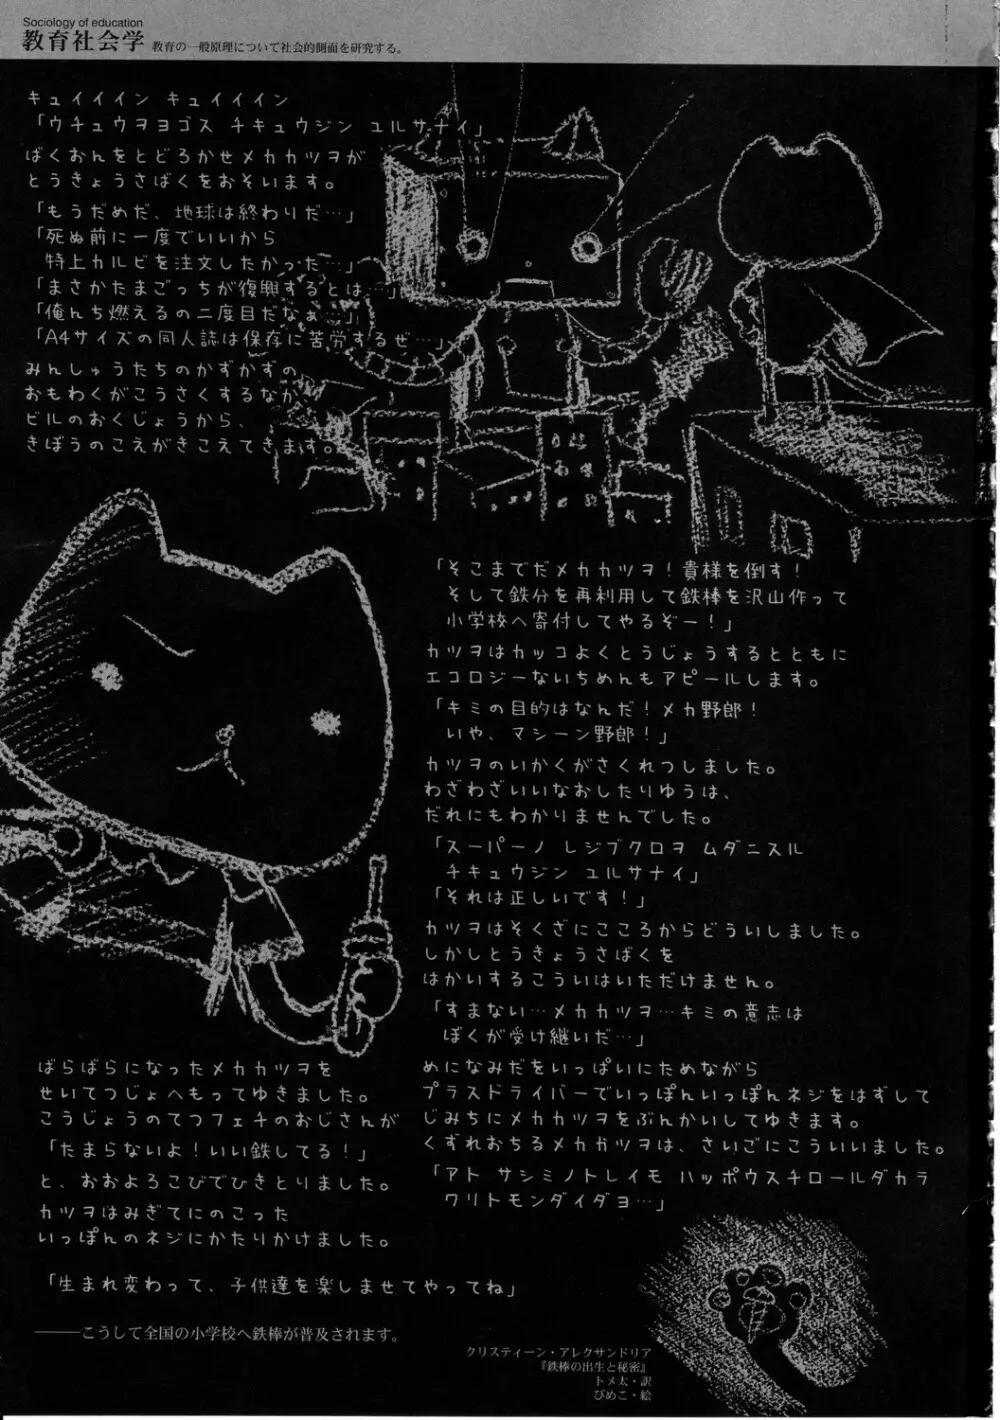 Sociology of education
教育社会学 教育の一般原理について社会的側面を研究する。
キュイイイン キュイイイン
「ウチュウヲヨゴス チキュウジン ユルサナイ」
ばくおんをとどろかせメカカツヲが
とうきょうさばくをおそいます。
「もうだめだ、地球は終わりだ…」
「死ぬ前に一度でいいから
特上カルビを注文したかった…」
「まさかたまごっちが復興するとは…」
「俺んち燃えるの二度目だなぁ…」
「A4サイズの同人誌は保存に苦労するぜ…」
みんしゅうたちのかずかずの
おもわくがこうさくするなか、
ビルのおくじょうから、
きぼうのこえがきこえてきます。
「そこまでだメカカツヲ！貴様を倒す！
そして鉄分を再利用して鉄棒を沢山作って
小学校へ寄付してやるぞー！」
カツヲはカッコよくとうじょうするとともに
エコロジーないちめんもアピールします。
「キミの目的はなんだ！メカ野郎！
いや、マシーン野郎！」
カツヲのいかくがさくれつしました。
わざわざいいなおしたりゆうは、
だれにもわかりませんでした。
「スーパーノ レジブクロヲ ムダニスル
チキュウジン ユルサナイ」
「それは正しいです！」
カツヲはそくざにこころからどういしました。
しかしとうきょうさばくを
はかいするこういはいただけません。
「すまない…メカカツヲ…キミの意志は
ぼくが受け継いだ…」
めになみだをいっぱいにためながら
プラスドライバーでいっぽんいっぽんネジをはずして
じみちにメカカツヲをぶんかいしてゆきます。
くずれおちるメカカツヲは、さいごにこういいました。
「アト サシミノトレイモ ハッポウスチロールダカラ
ワリトモンダイダヨ…」
ばらばらになったメカカツヲを
せいてつじょへもってゆきました。
こうじょうのてつフェチのおじさんが
「たまらないよ！いい鉄してる！」
と、おおよろこびでひきとりました。
カツヲはみぎてにのこった
いっぽんのネジにかたりかけました。
「生まれ変わって、子供達を楽しませてやってね」
―――こうして全国の小学校へ鉄棒が普及されます。
クリスティーン・アレクサンドリア
『鉄棒の出生と秘密』
トメ太・訳
ぴめこ・絵